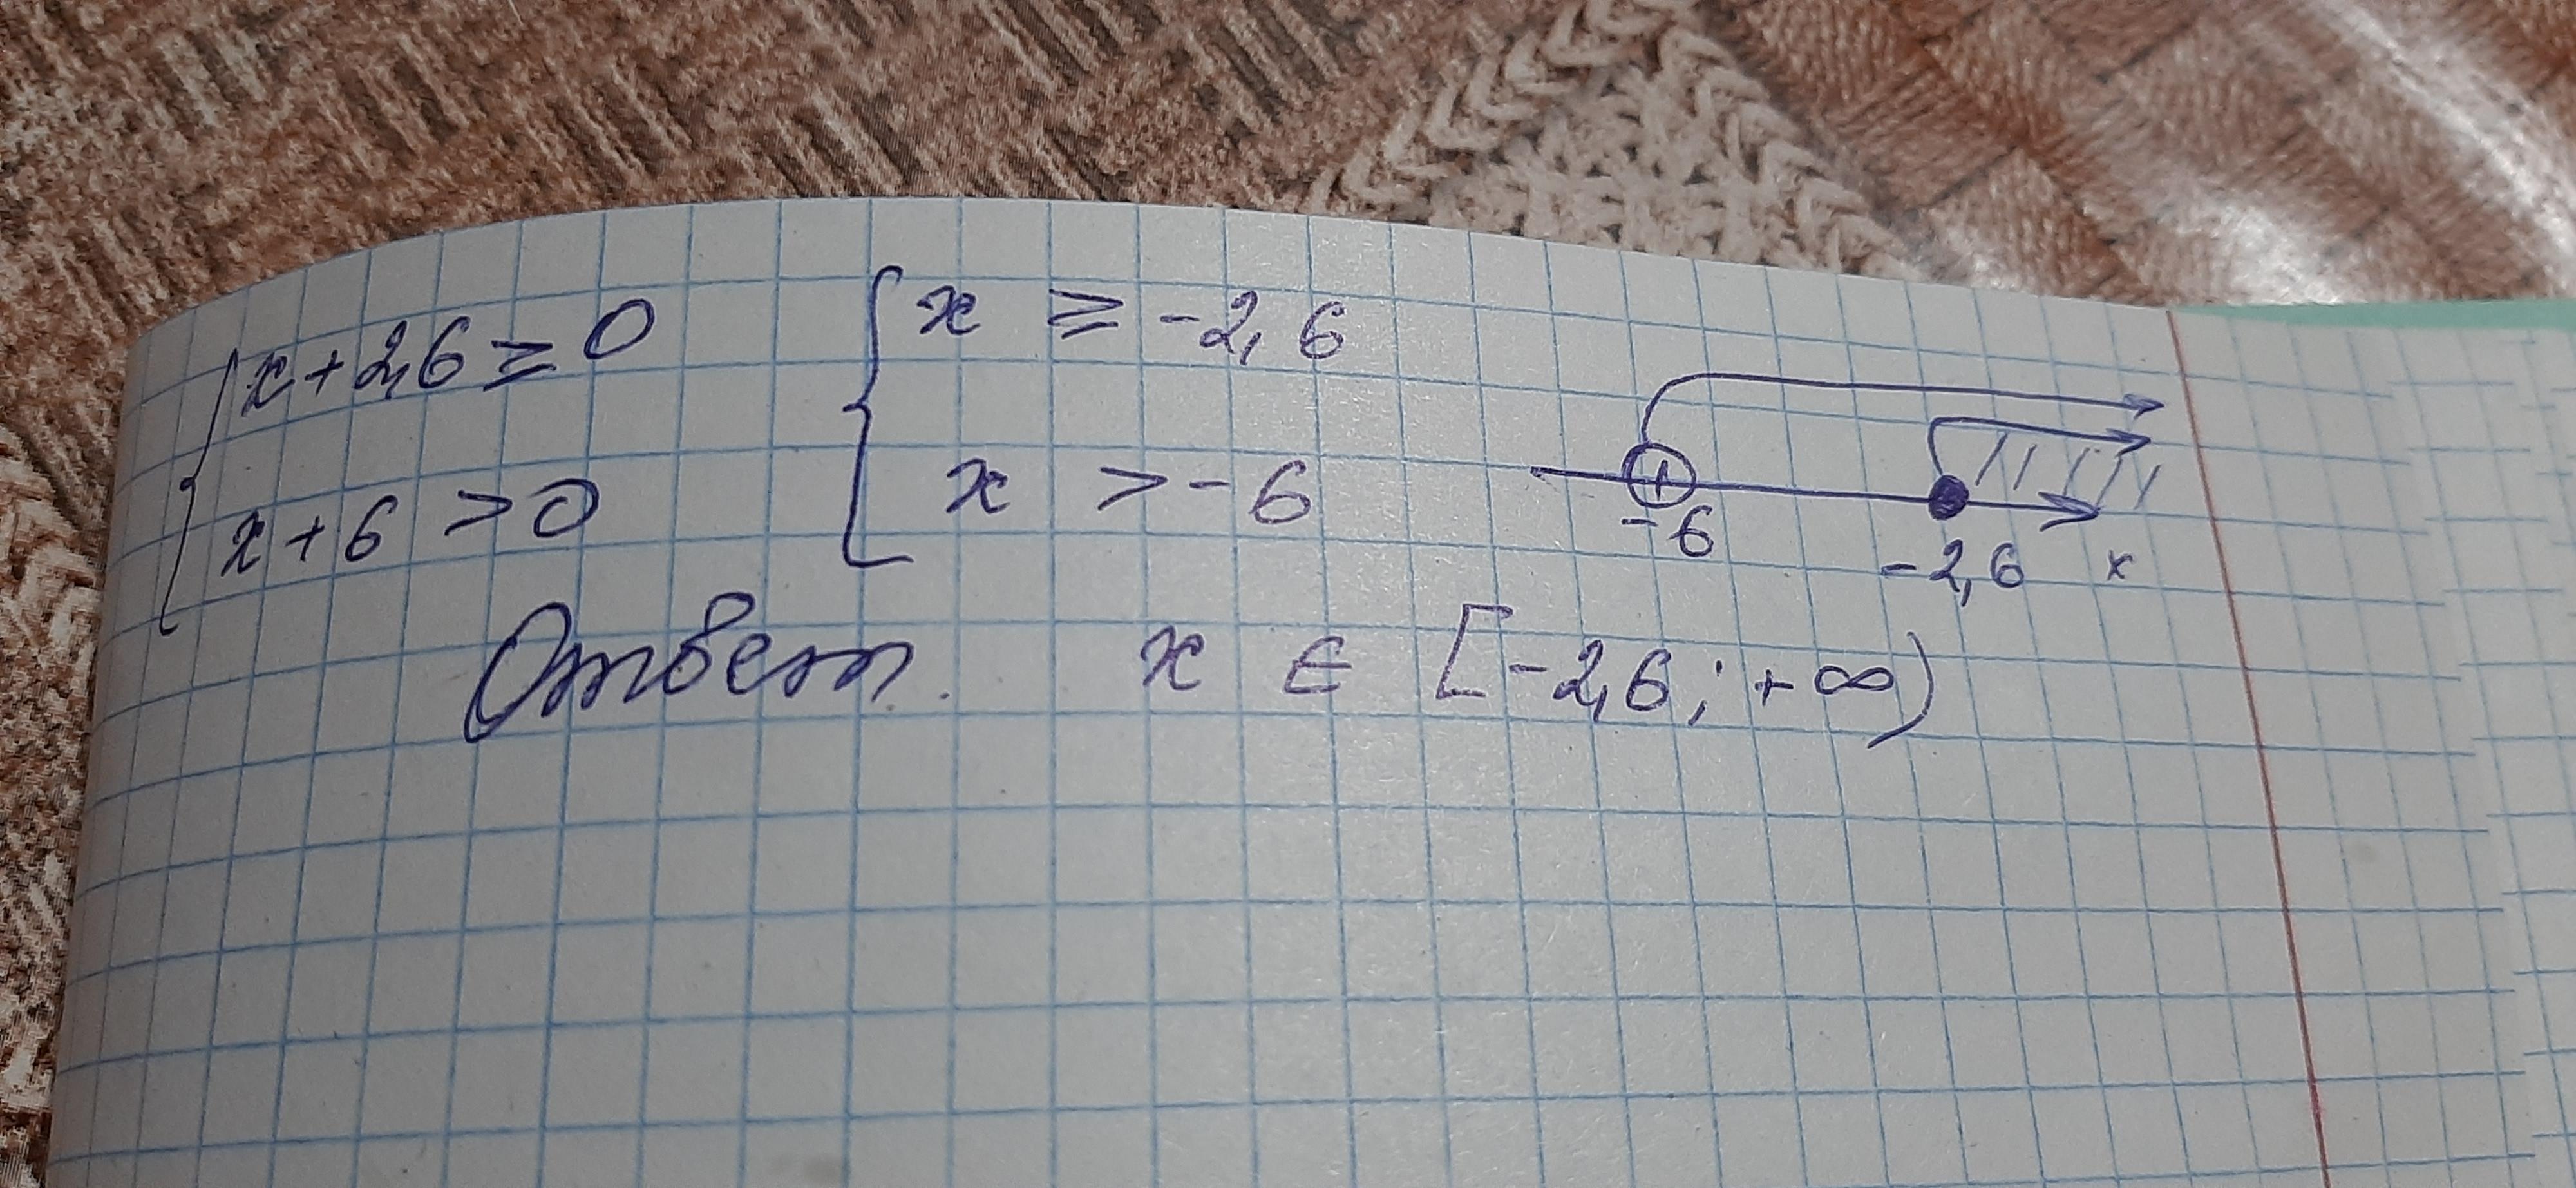 x+2,6≥0
x+6>0
x ≥ -2,6
x > -6
-6
-2,6 x
Ответ. x ∈ [-2,6; +∞)